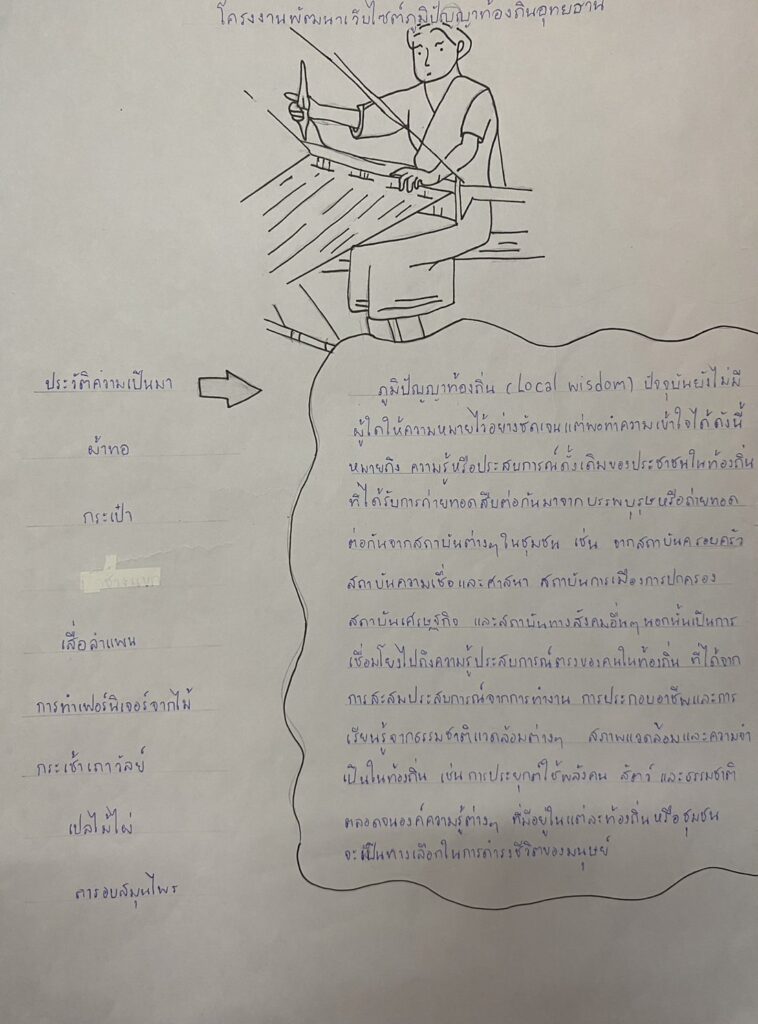 โครงงานพัฒนาเว็บไซต์ภูมิปัญญาท้องถิ่นอุทยธาน
ประวัติความเป็นมา
ผ้าทอ
กระเป๋า
เสื่อลำแพน
การทำเฟอร์นิเจอร์จากไม้
กระเช้าเถาวัลย์
เปลไม้ไผ่
การอบสมุนไพร
ภูมิปัญญาท้องถิ่น (Local wisdom) ปัจจุบันยังไม่มี
ผู้ใดให้ความหมายไว้อย่างชัดเจน แต่พอทำความเข้าใจได้ดังนี้
หมายถึง ความรู้หรือประสบการณ์ดั้งเดิมของประชาชนในท้องถิ่น
ที่ได้รับการถ่ายทอดสืบต่อกันมาจากบรรพบุรุษหรือถ่ายทอด
ต่อกันจากสถาบันต่างๆในชุมชน เช่น จากสถาบันครอบครัว
สถาบันความเชื่อและศาสนา สถาบันการเมืองการปกครอง
สถาบันเศรษฐกิจ และสถาบันทางสังคมอื่นๆนอกนั้นเป็นการ
เชื่อมโยงไปถึงความรู้ประสบการณ์ตรงของคนในท้องถิ่น ที่ได้จาก
การสะสมประสบการณ์จากการทำงาน การประกอบอาชีพและการ
เรียนรู้จากธรรมชาติแวดล้อมต่างๆ สภาพแวดล้อมและความจำ
เป็นในท้องถิ่น เช่นการประยุกต์ใช้พลังคน สัตว์ และธรรมชาติ
ตลอดจนองค์ความรู้ต่างๆ ที่มีอยู่ในแต่ละท้องถิ่นหรือชุมชน
จะเป็นทางเลือกในการดำรงชีวิตของมนุษย์